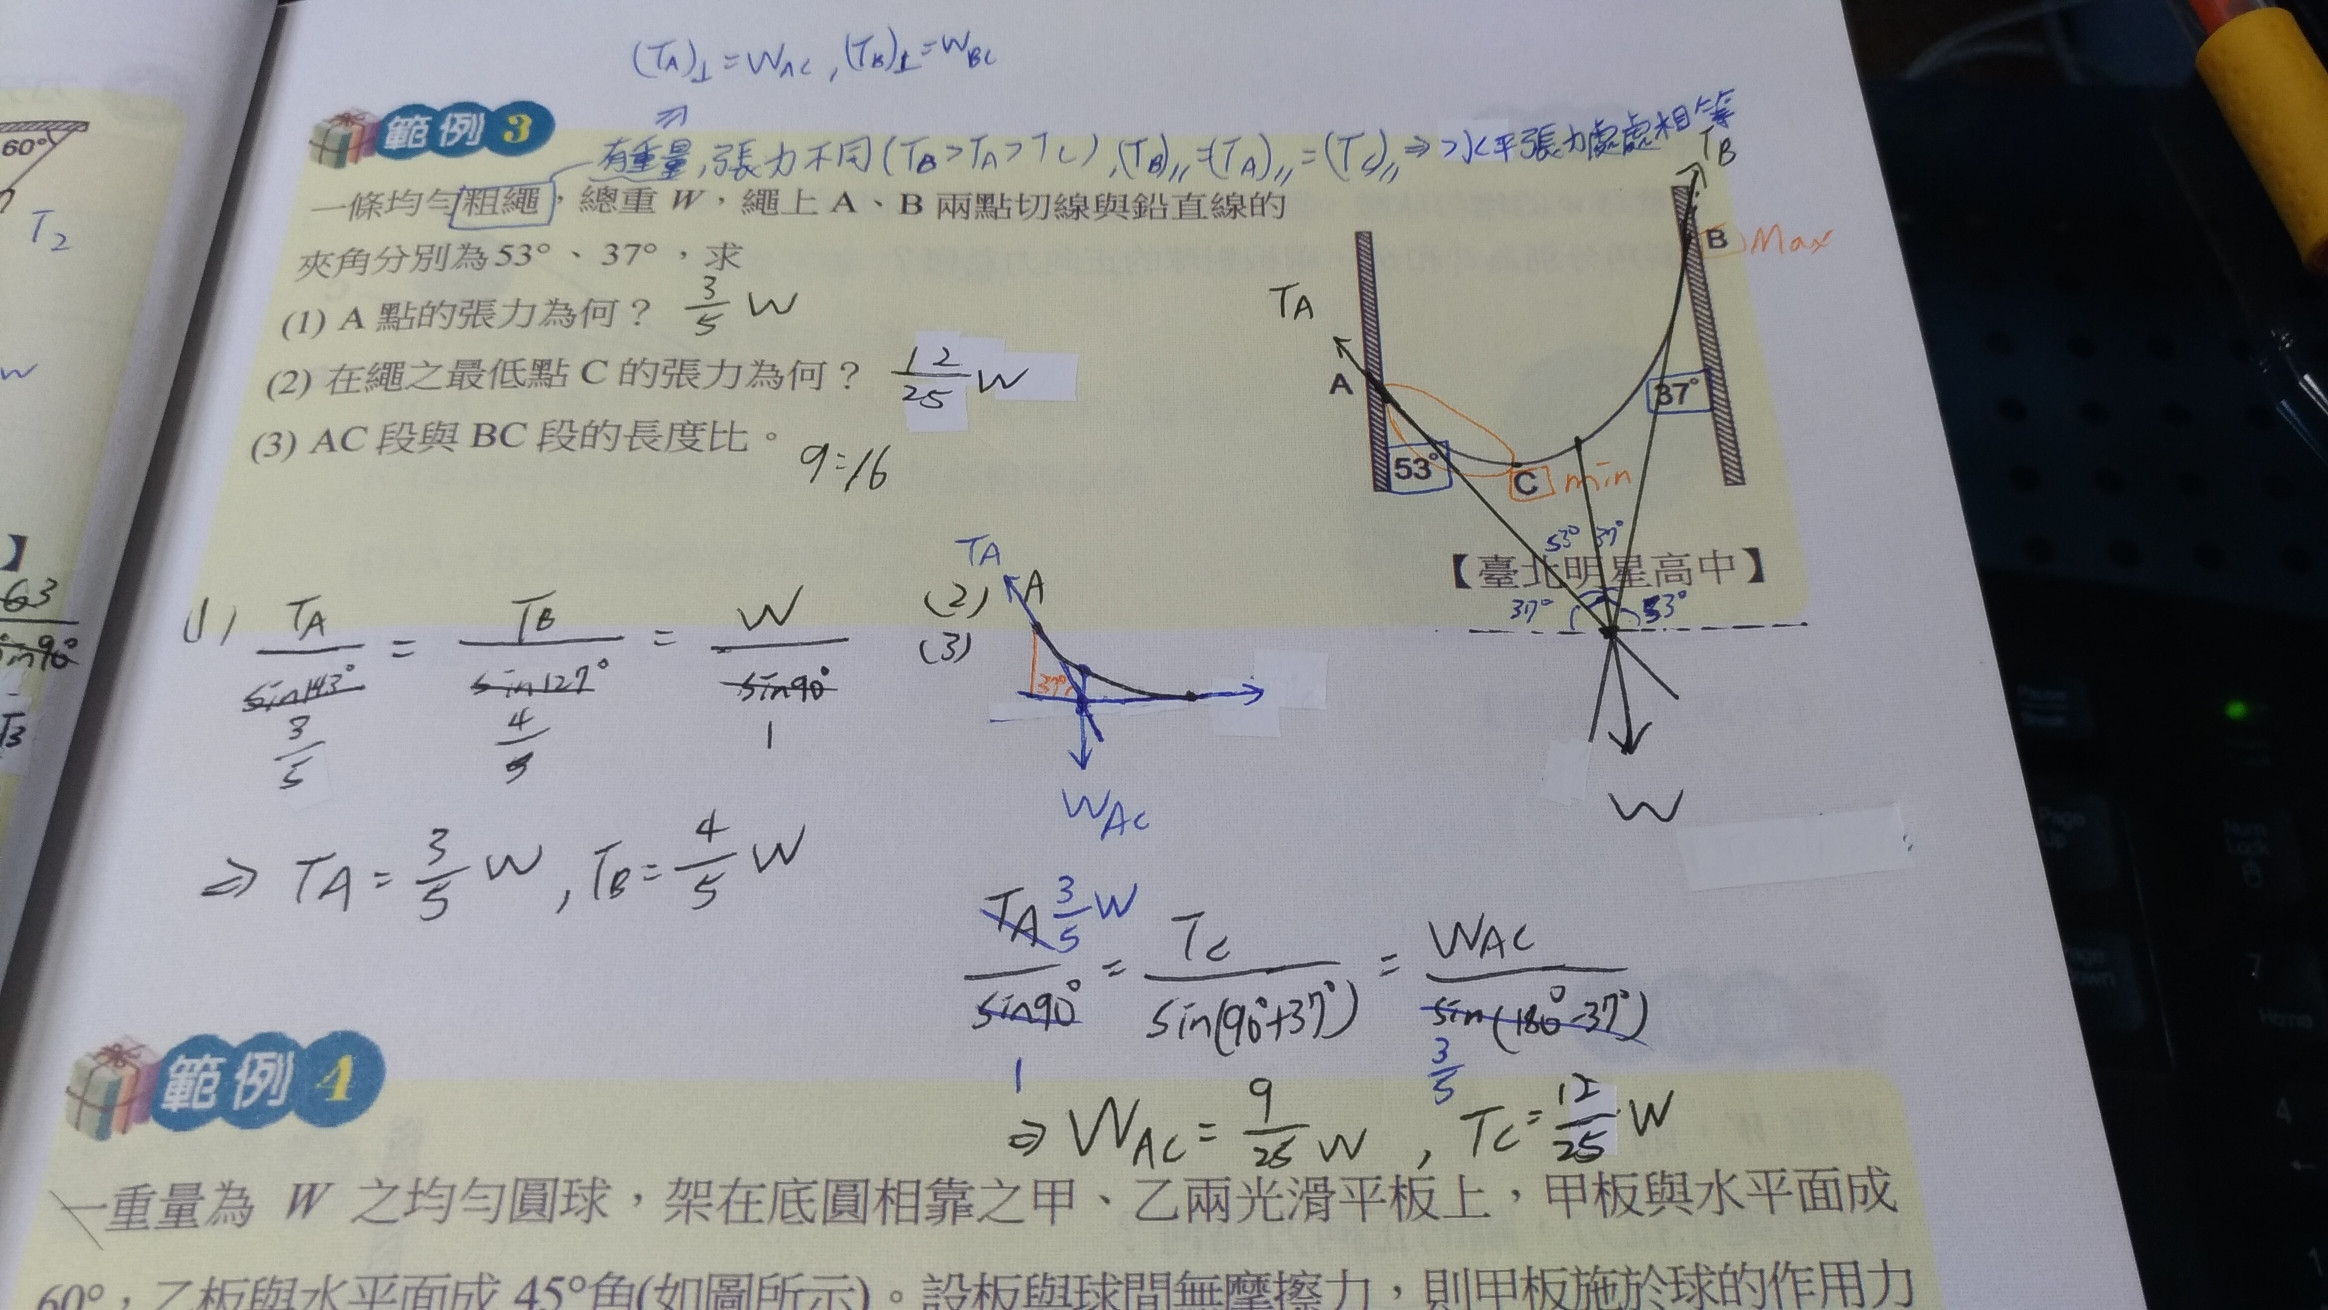 (TA)⊥=WAC,(TB)⊥=WBC
範例3
有重量,張力不同(TB>TA>TC),(TB)//=(TA)//=(TC)//⇒水平張力處處相等
一條均勻粗繩,總重W,繩上A、B兩點切線與鉛直線的
夾角分別為53°、37°,求
(1) A點的張力為何? 3/5 W
(2) 在繩之最低點C的張力為何? 12/25 W
(3) AC段與BC段的長度比。 9:16
TB
B Max
TA
A
37°
53°
C min
53° 37°
【臺北明星高中】
37° 53°
W
(1) TA/sin143° = TB/sin127° = W/sin90°
3/5 4/5 1
⇒ TA=3/5 W, TB=4/5 W
(2)
(3)
TA
A
37°
WAC
TA 3/5 W/sin90° = TC/sin(90°+37°) = WAC/sin(180°-37°)
1 3/5
⇒ WAC=9/25 W, TC=12/25 W
範例4
一重量為 W 之均勻圓球,架在底圓相靠之甲、乙兩光滑平板上,甲板與水平面成
60°,乙板與水平面成45°角(如圖所示)。設板與球間無摩擦力,則甲板施於球的作用力
60°
T2
W
】
63
sin90°
Page Up
Num Lock
7
Home
4
1